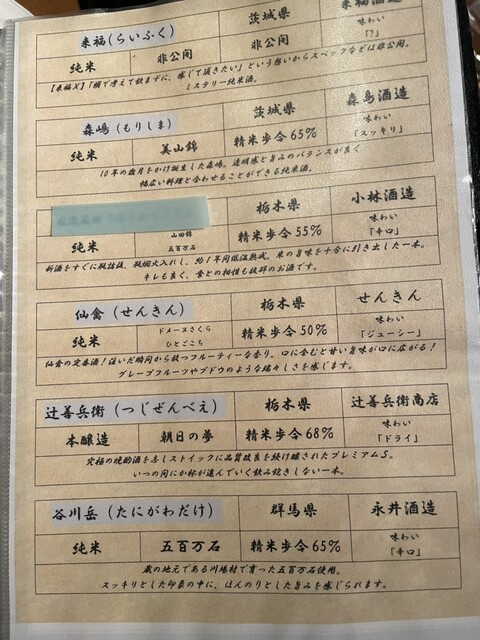 来福（らいふく）　茨城県　来福酒造
純米　非公開　非公開　味わい「？」
【来福X】「頭で考えて飲まずに、感じて頂きたい」という想いからスペックなどは非公開。
ミステリー純米酒。
森嶋（もりしま）　茨城県　森島酒造
純米　美山錦　精米歩合65%　味わい「スッキリ」
10年の歳月をかけ誕生した森嶋。透明感と旨みのバランスが良く
幅広い料理と合わせることができる純米酒。
栃木県　小林酒造
純米　山田錦　五百万石　精米歩合55%　味わい「辛口」
新酒をすぐに瓶詰後、瓶燗火入れし、約1年間低温熟成。米の旨味を十分に引き出した一本。
キレも良く、食との相性も抜群のお酒です。
仙禽（せんきん）　栃木県　せんきん
純米　ドメーヌさくら　ひとごこち　精米歩合50%　味わい「ジューシー」
仙禽の定番酒！注いだ瞬間から放つフルーティーな香り。口に含むと甘い旨味が口に広がる！
グレープフルーツやブドウのような瑞々しさを感じます。
辻善兵衛（つじぜんべえ）　栃木県　辻善兵衛商店
本醸造　朝日の夢　精米歩合68%　味わい「ドライ」
究極の晩酌酒を志しストイックに品質改良を続け醸されたプレミアムS。
いつの間にか杯が進んでいく飲み飽きしない一本。
谷川岳（たにがわだけ）　群馬県　永井酒造
純米　五百万石　精米歩合65%　味わい「辛口」
蔵の地元である川場村で育った五百万石使用。
スッキリとした印象の中に、ほんのりとした旨みを感じられます。